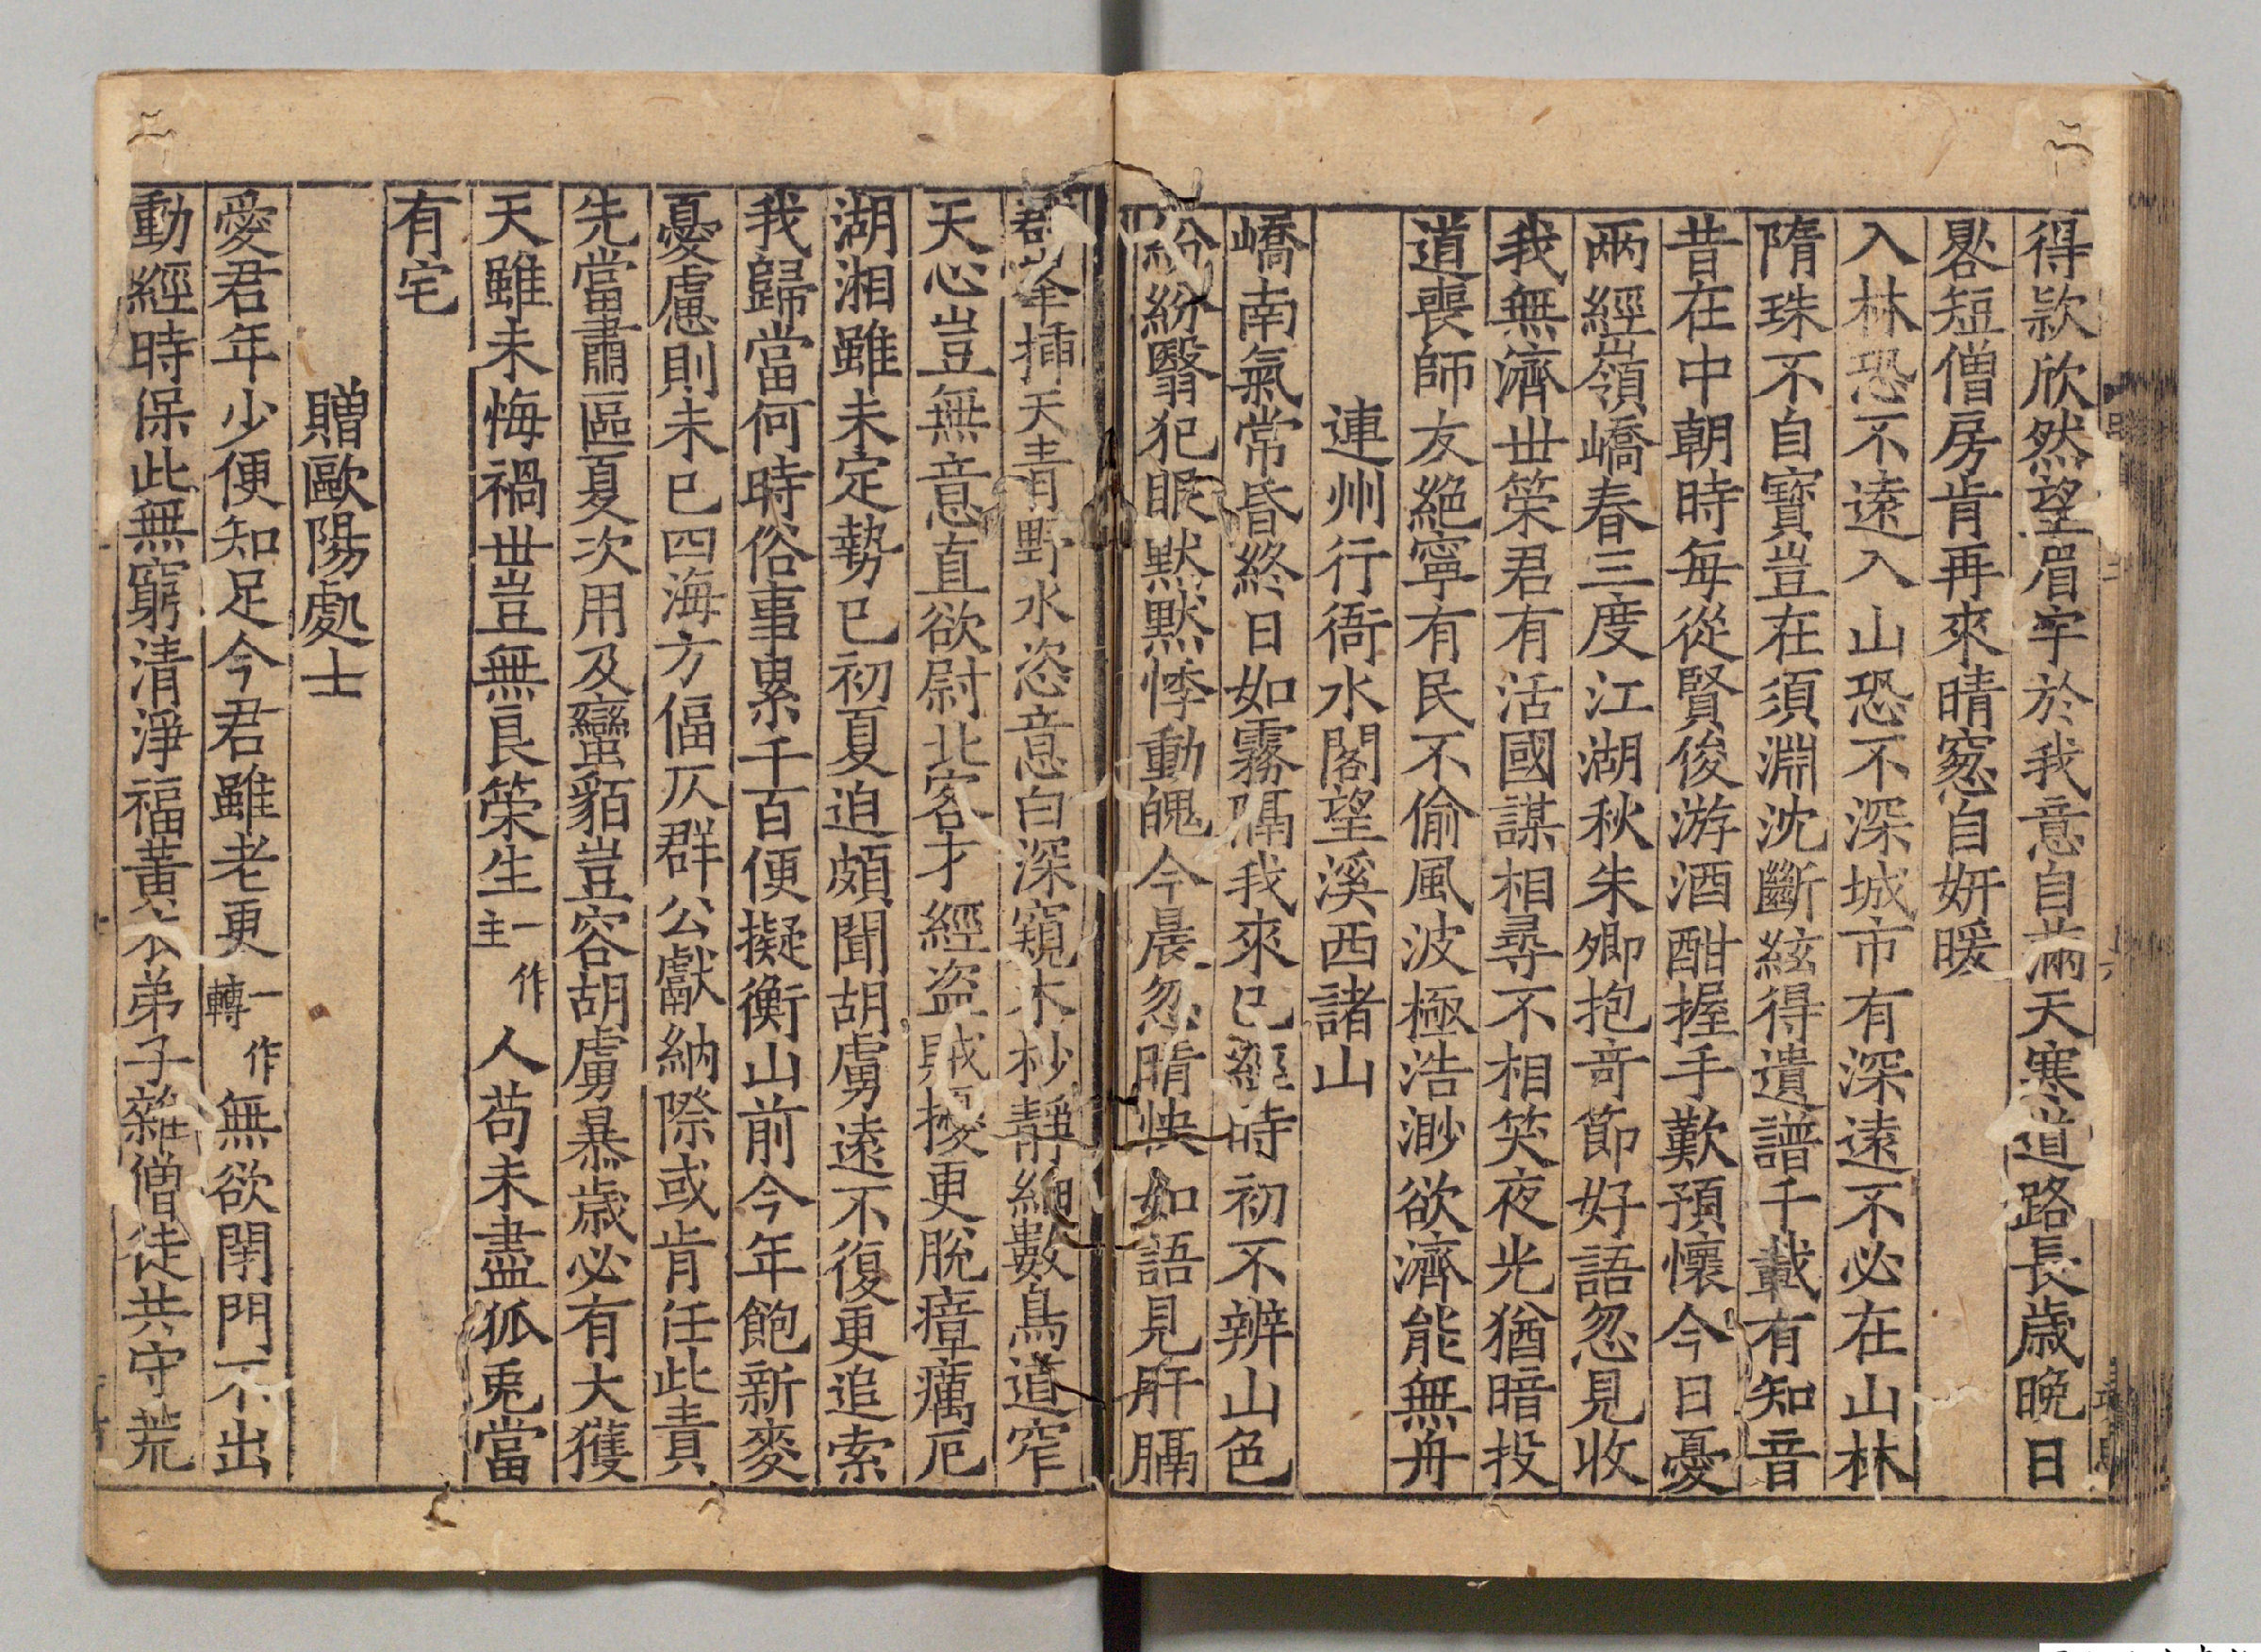 得款欣然望眉宇於我意自滿天寒道路長歲晚日
晷短僧房肯再來晴窓自妍暖
入林恐不遠入山恐不深城市有深遠不必在山林
隋珠不自寶豈在須淵沈斷絃得遺譜千載有知音
昔在中朝時每從賢俊游酒酣握手歎預懷今日憂
兩經嶺嶠春三度江湖秋朱卿抱奇節好語忽見收
我無濟世策君有活國謀相尋不相笑夜光猶暗投
道喪師友絕寧有民不偷風波極浩渺欲濟能無舟
連州行衙水閣望溪西諸山
嶠南氣常昏終日如霧隔我來已經時初不辨山色
紛紛翳犯眼默默悸動魄今晨忽晴快如語見肝膈
群峯揷天青野水恣意白深窺木杪靜細數鳥道窄
天心豈無意直欲尉北客才經盜賊擾更脫瘴癘厄
湖湘雖未定勢已初夏迫頗聞胡虜遠不復更追索
我歸當何時俗事累千百便擬衡山前今年飽新麥
憂慮則未已四海方偪仄群公獻納際或肯任此責
先當肅區夏次用及蠻貊豈容胡虜暴歲必有大獲
天雖未悔禍世豈無良策生一作主人苟未盡狐兎當
有宅
贈歐陽處士
愛君年少便知足今君雖老更一作轉無欲閉門不出
動經時保此無窮清淨福黃 弟子雜僧徒共守荒